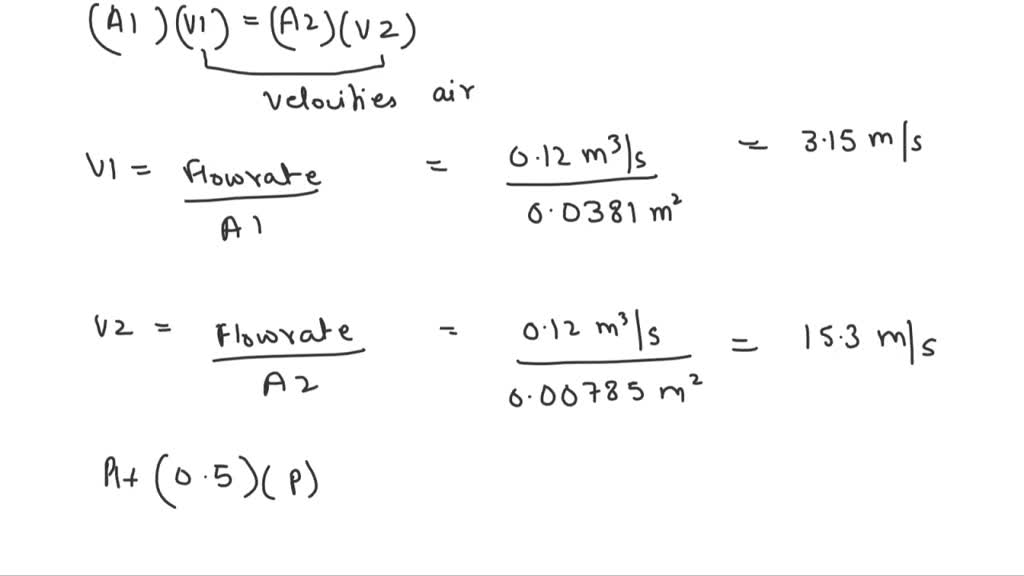 (A1)(V1) = (A2)(V2)
velocities air
V1 = Flowrate / A1 = 0.12 m³/s / 0.0381 m² = 3.15 m/s
V2 = Flowrate / A2 = 0.12 m³/s / 0.00785 m² = 15.3 m/s
P1+ (0.5)(P)